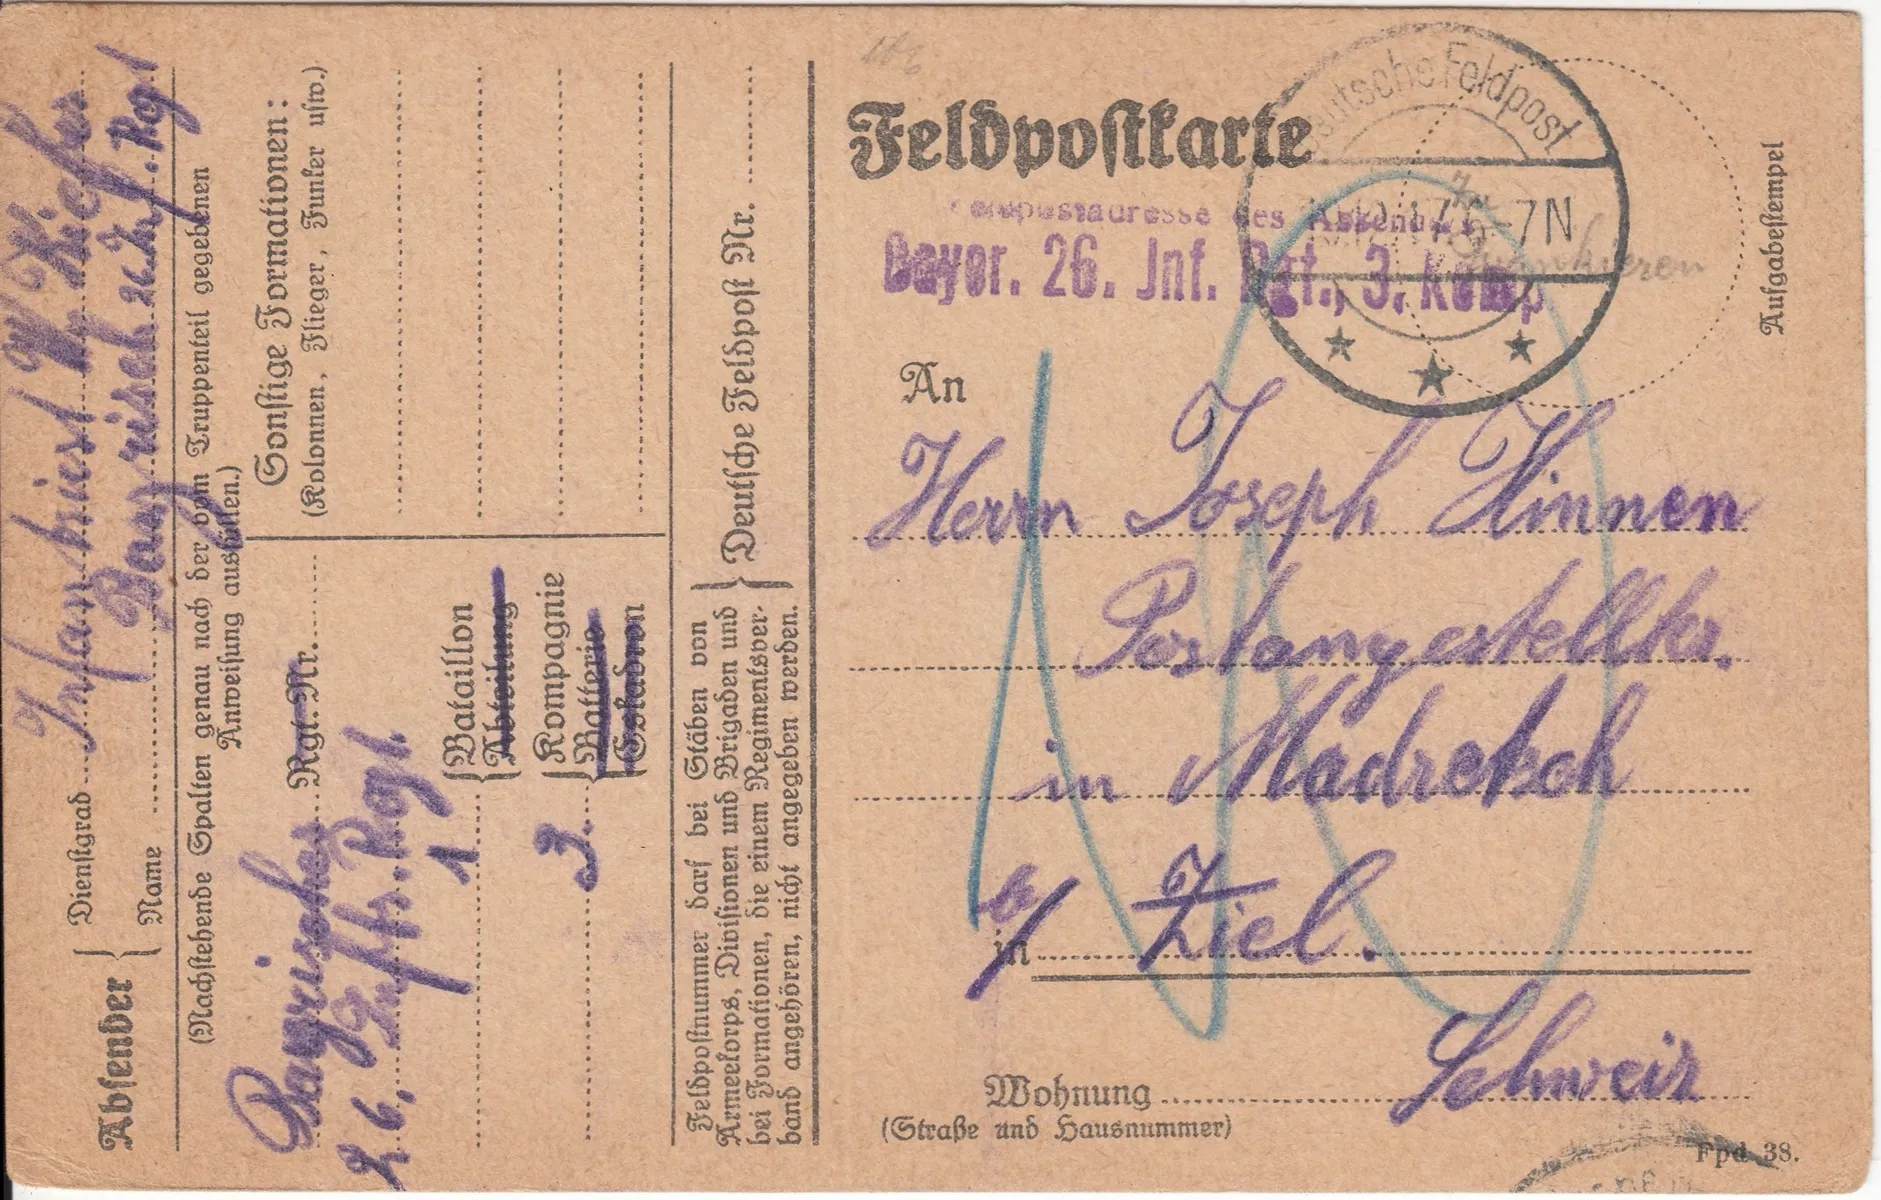 Feldpostkarte
Deutsche Feldpost
17 6-7N
Feldpostadresse des Absenders
Bayer. 26. Inf. Rgt., 3. Komp
Frankieren
Aufgabestempel
An
Herrn Joseph Hinnen
Postangestellter.
in Madretsch
b/ Biel.
in
Schweiz
Wohnung
(Straße und Hausnummer)
Fpd 38.
Absender { Dienstgrad Infantrist W Kieffer
Name Bayrisch 26 Inf. Regt
(Nachstehende Spalten genau nach der vom Truppenteil gegebenen
Anweisung ausfüllen.)
Bayrisches Rgt. Nr.
26. Inft. Regt.
1 { Bataillon
Abteilung
3. { Kompagnie
Batterie
Eskadron
Sonstige Formationen:
(Kolonnen, Flieger, Funker usw.)
Feldpostnummer darf bei Stäben von
Armeekorps, Divisionen und Brigaden und
bei Formationen, die einem Regimentsver-
band angehören, nicht angegeben werden.
} Deutsche Feldpost Nr.